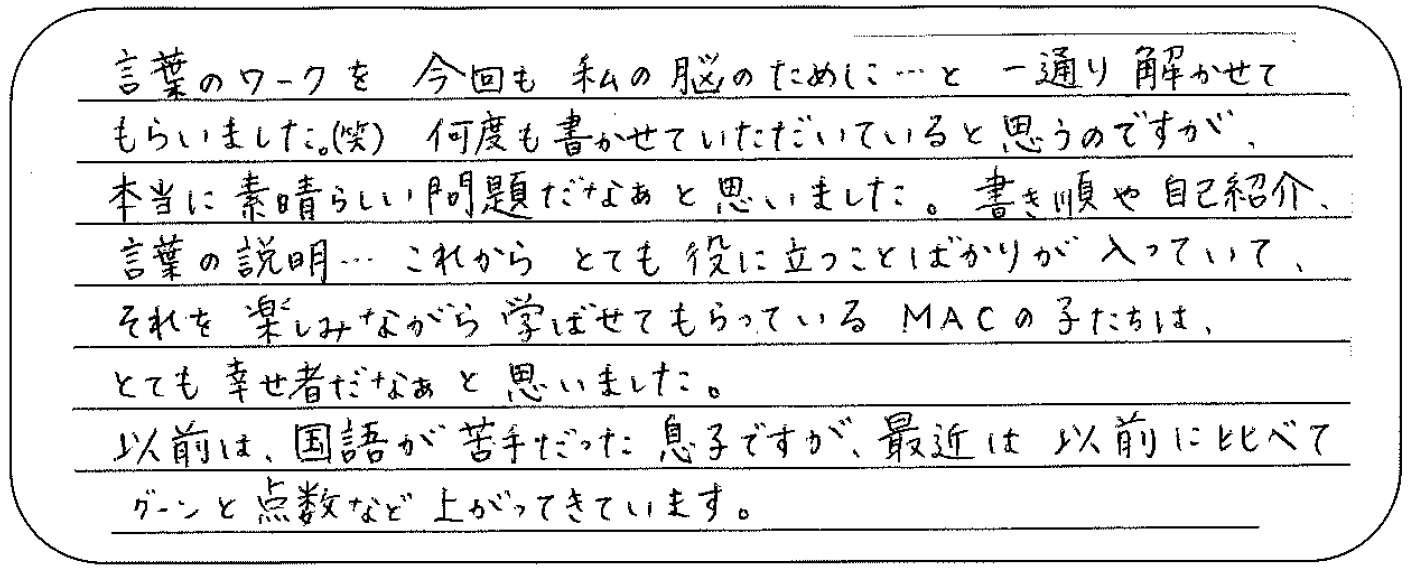 言葉のワークを 今回も 私の脳のために…と 一通り解かせて
もらいました。(笑) 何度も書かせていただいていると思うのですが、
本当に素晴らしい問題だなぁと思いました。書き順や自己紹介、
言葉の説明… これから とても役に立つことばかりが入っていて、
それを楽しみながら学ばせてもらっている MACの子たちは、
とても幸せ者だなぁと思いました。
以前は、国語が苦手だった息子ですが、最近は以前に比べて
グーンと点数など上がってきています。